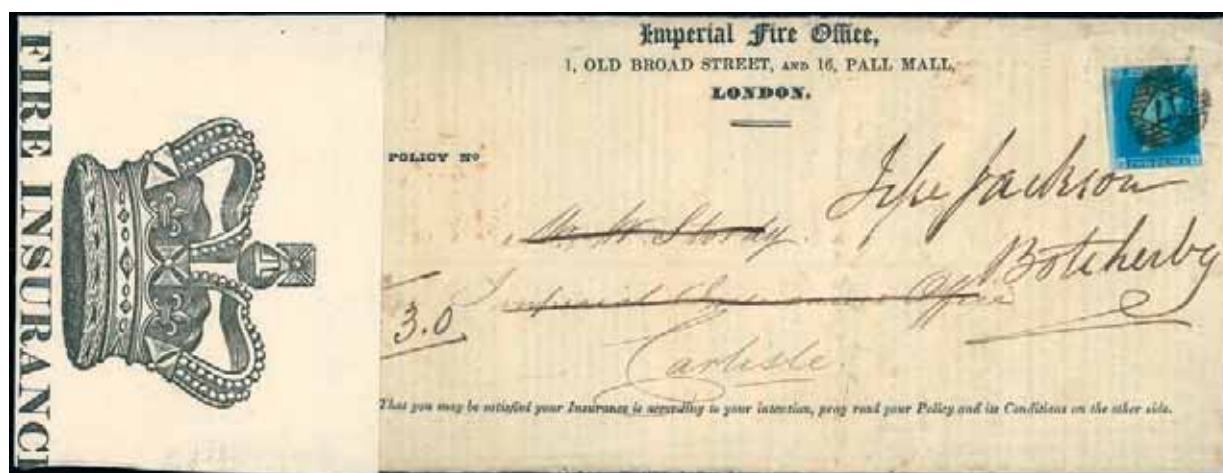 FIRE INSURANC
Imperial Fire Office,
1, OLD BROAD STREET, AND 16, PALL MALL,
LONDON.
POLICY No
Jackson
Botcherby
Mr. W. Stordy
Imperial Insurance Office
3.0
Carlisle
That you may be satisfied your Insurance is according to your intention, pray read your Policy and its Conditions on the other side.